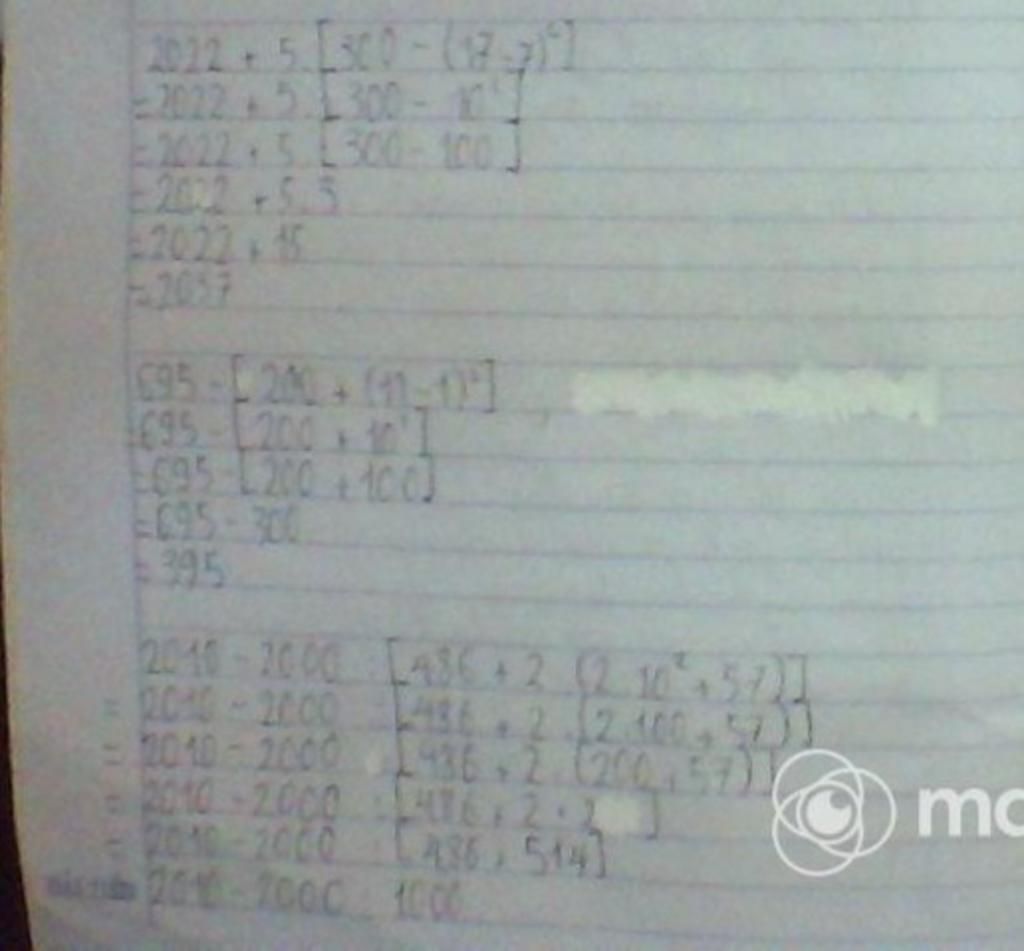 2022 + 5 . [300 - (17 - 7)²]
= 2022 + 5 . [300 - 10²]
= 2022 + 5 . [300 - 100]
= 2022 + 5 . 3
= 2022 + 15
= 2037
695 - [200 + (11 - 1)²]
695 - [200 + 10²]
= 695 - [200 + 100]
= 695 - 300
= 395
2010 - 2000 : [486 + 2 . (2 . 10² + 57)]
= 2010 - 2000 : [486 + 2 . (2 . 100 + 57)]
= 2010 - 2000 : [486 + 2 . (200 + 57)]
= 2010 - 2000 : [486 + 2 . 2 ]
= 2010 - 2000 : [486 + 514]
2010 - 2000 : 1000